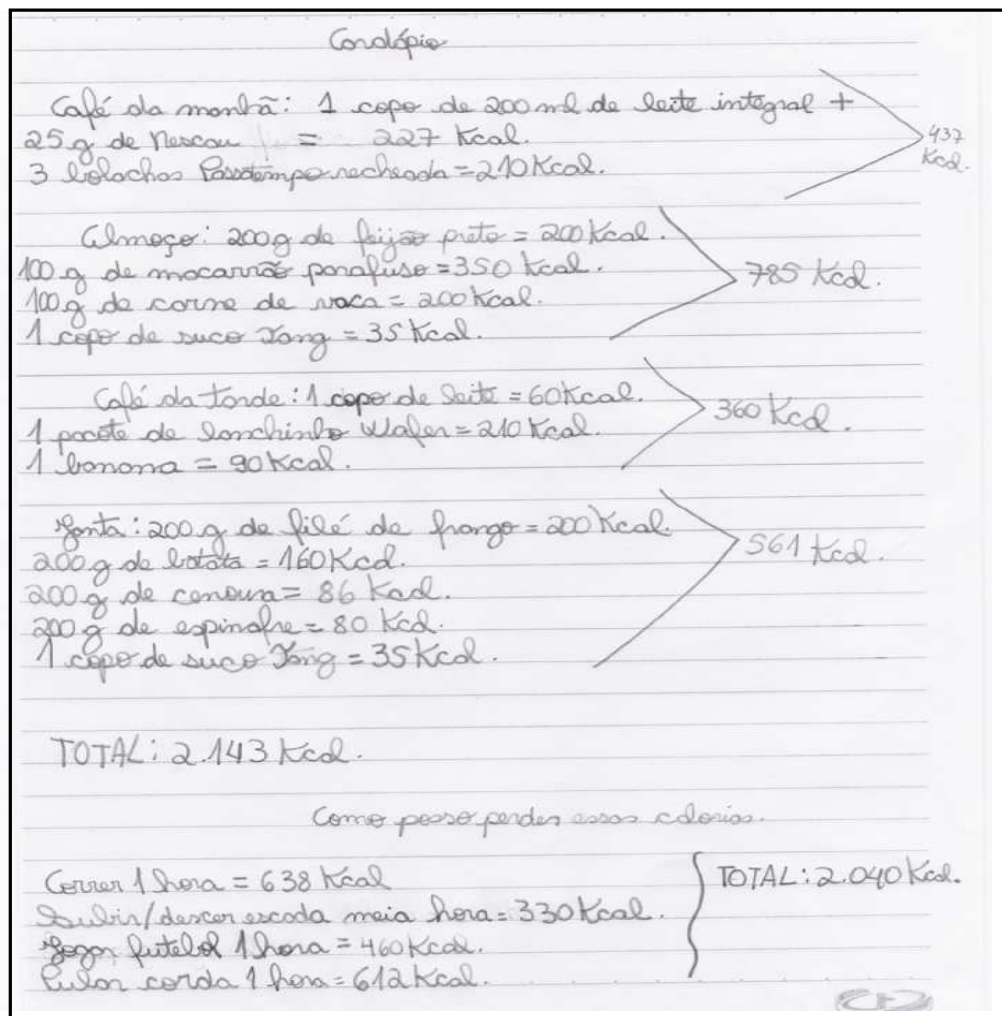 Cardápio
Café da manhã: 1 copo de 200 ml de leite integral +
25 g de Nescau = 227 Kcal.
3 bolachas Passatempo recheada = 210 Kcal.
437
Kcal.
Almoço: 200 g de feijão preto = 200 Kcal.
100 g de macarrão parafuso = 350 Kcal.
100 g de carne de vaca = 200 Kcal.
1 copo de suco Tang = 35 Kcal.
785 Kcal.
Café da tarde: 1 copo de leite = 60 Kcal.
1 pacote de lanchinho Wafer = 210 Kcal.
1 banana = 90 Kcal.
360 Kcal.
Janta: 200 g de filé de frango = 200 Kcal.
200 g de batata = 160 Kcal.
200 g de cenoura = 86 Kcal.
200 g de espinafre = 80 Kcal.
1 copo de suco Tang = 35 Kcal.
561 Kcal.
TOTAL: 2.143 Kcal.
Como posso perder essas calorias.
Correr 1 hora = 638 Kcal
Subir/descer escada meia hora = 330 Kcal.
Jogar futebol 1 hora = 460 Kcal.
Pular corda 1 hora = 612 Kcal.
TOTAL: 2.040 Kcal.